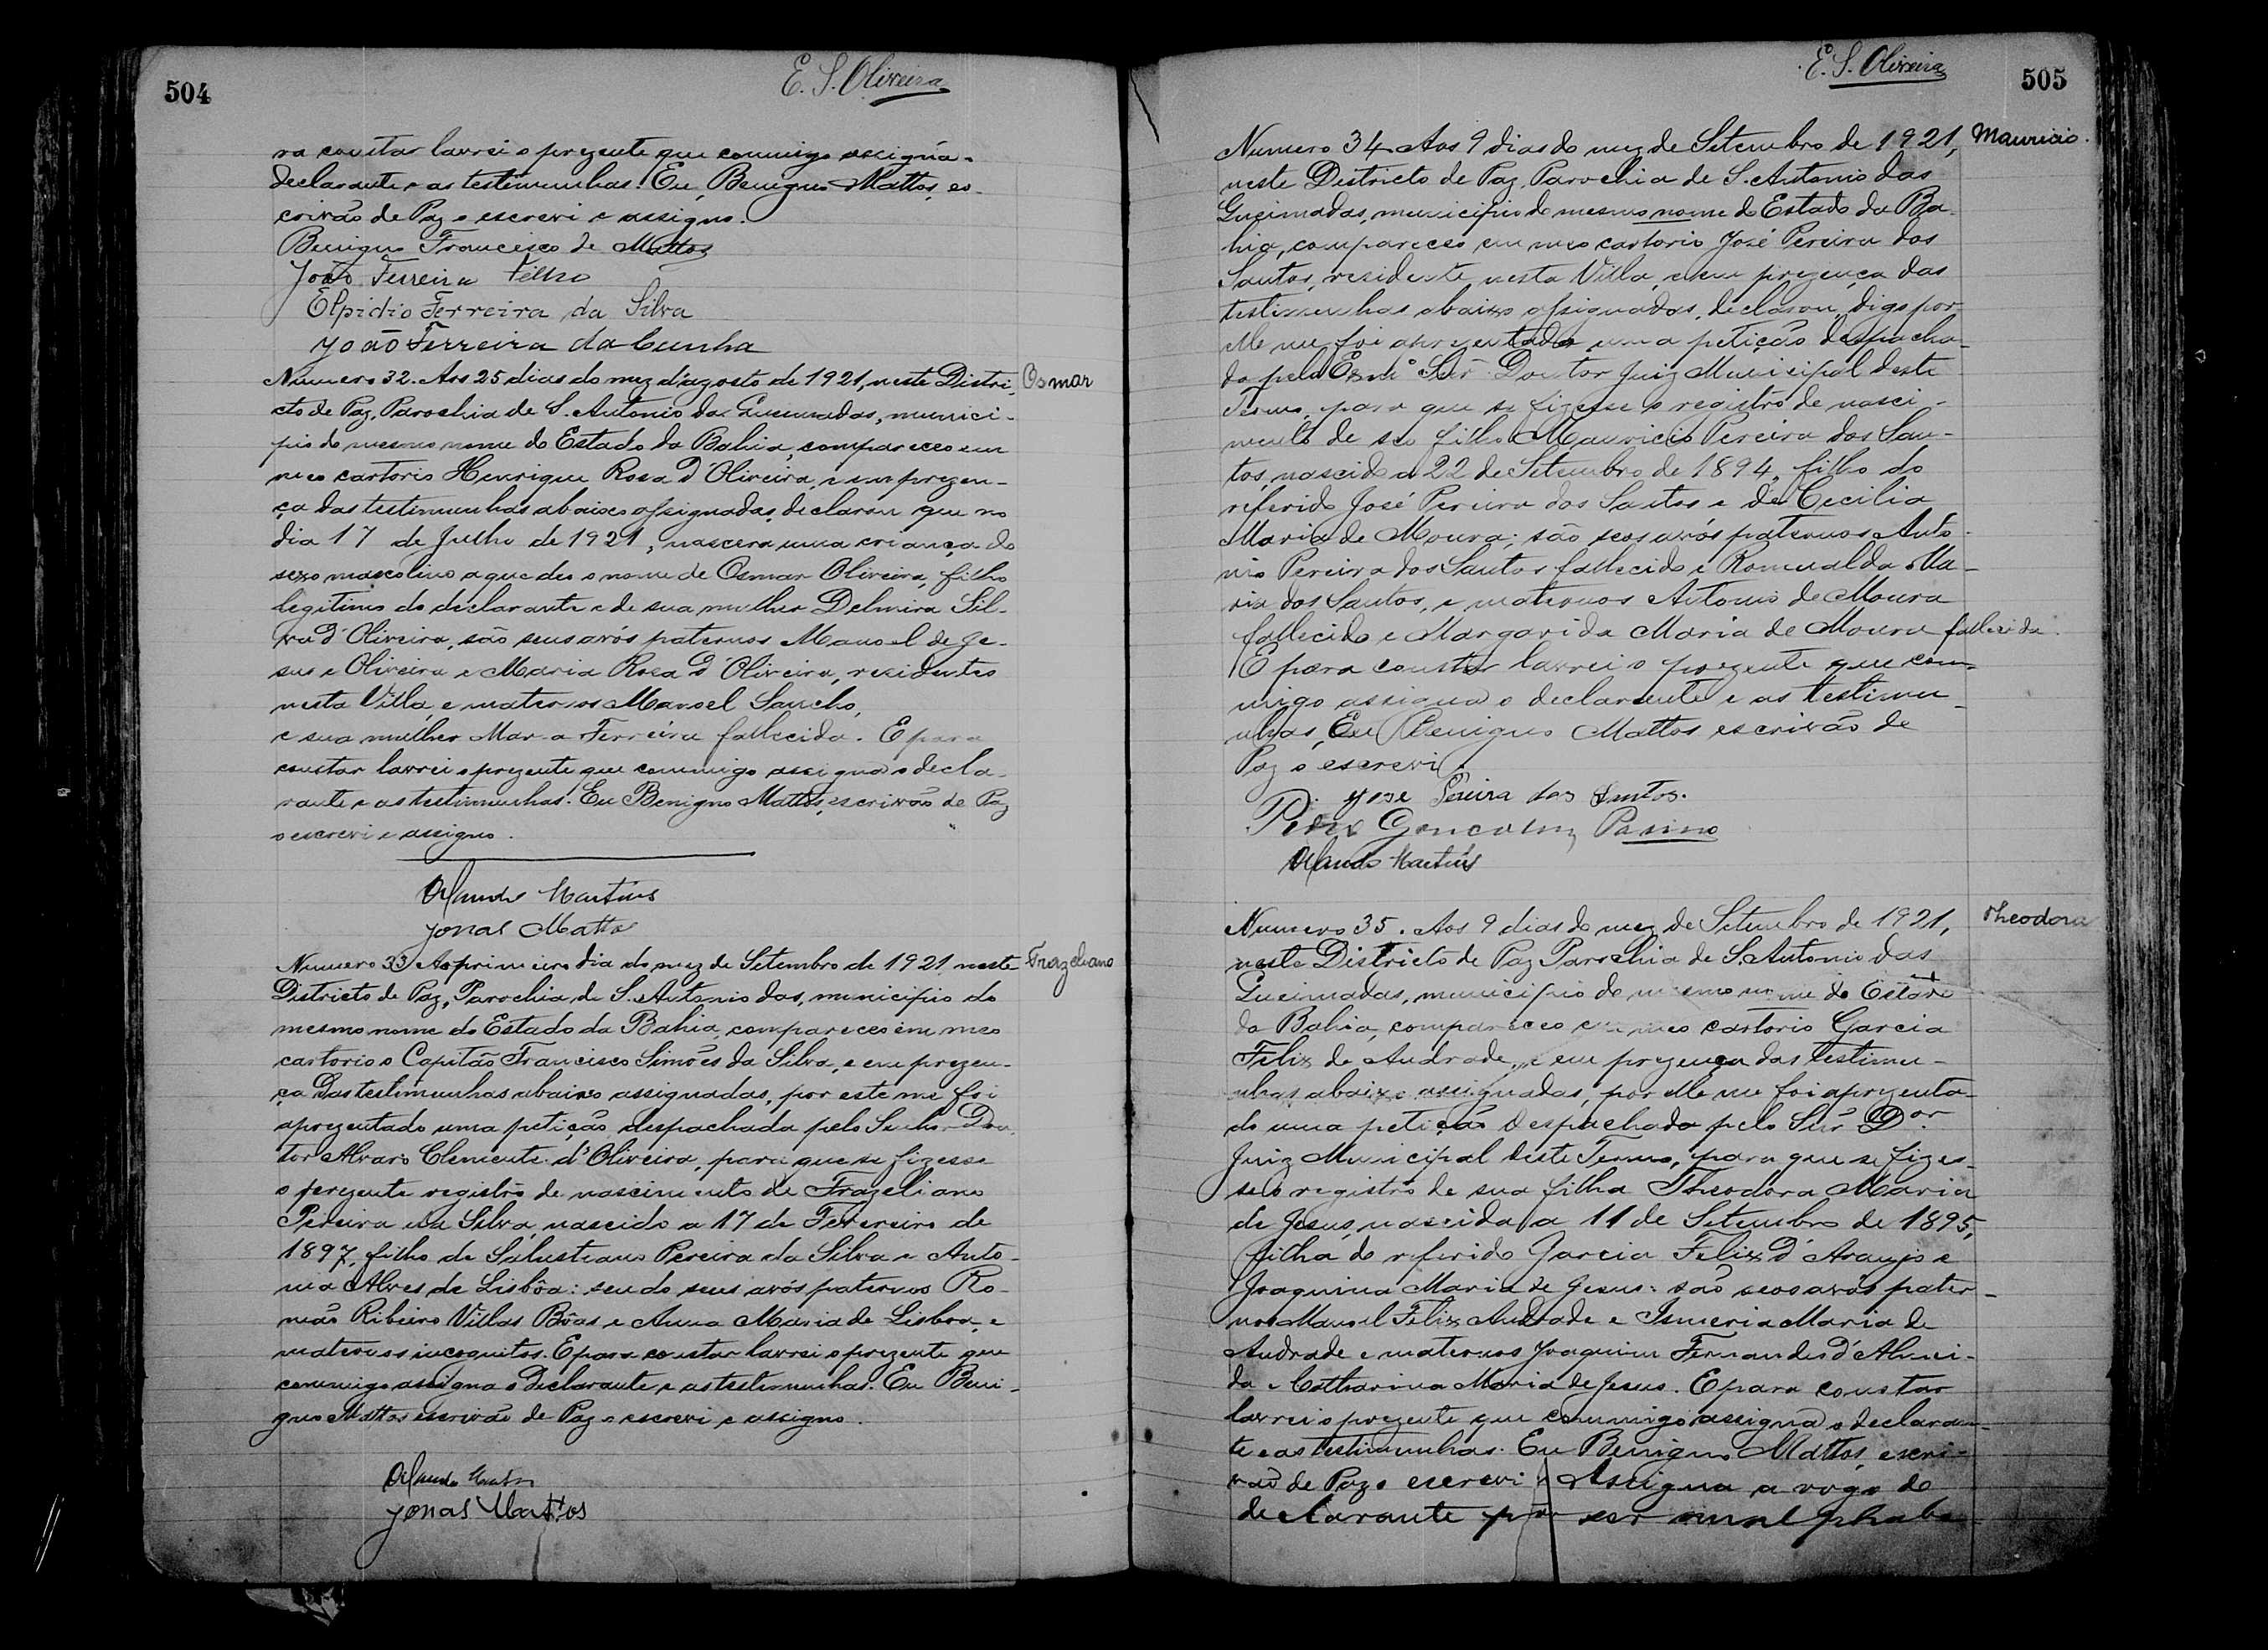 504
E. S. Oliveira
ra constar lavrei o prezente que commigo assigna o
declarante e as testimunhas. Eu, Benigno Mattos, es-
crivão de Paz o escrevi e assigno.
Benigno Francisco de Mattos
João Ferreira Filho
Elpidio Ferreira da Silva
João Ferreira da Cunha
Numero 32. Aos 25 dias do mez d'agosto de 1921, neste Distri-
Osmar
cto de Paz, Parochia de S. Antonio das Queimadas, munici-
pio do mesmo nome do Estado da Bahia, compareceo em
meo cartorio Henrique Rosa d'Oliveira, e em prezen-
ça das testimunhas abaixo assignadas, declarou que no
dia 17 de Julho de 1921, nascera uma criança do
sexo mascolino a que deo o nome de Osmar Oliveira, filho
legitimo do declarante e de sua mulher Delmira Sil-
va d'Oliveira, são seus avós paternos Manoel de Je-
sus e Oliveira e Maria Rosa d'Oliveira, residentes
nesta Villa, e maternos Manoel Sancho,
e sua mulher Maria Ferreira fallecida. E para
constar lavrei o prezente que commigo assigna o decla-
rante e as testimunhas. Eu Benigno Mattos, escrivão de Paz
o escrevi e assigno.
Orlando Martins
Jonas Mattos
Numero 33 Ao primeiro dia do mez de Setembro de 1921, neste
Frazeliano
Districto de Paz, Parochia de S. Antonio das, municipio do
mesmo nome do Estado da Bahia, compareceo em meo
cartorio o Capitão Francisco Simões da Silva, e em prezen-
ça das testimunhas abaixo assignadas, por este me foi
aprezentado uma petição despachada pelo Senhor Dou-
tor Alvaro Clemente d'Oliveira, para que se fizesse
o prezente registro de nascimento de Frazeliano
Pereira da Silva, nascido a 17 de Fevereiro de
1897, filho de Salustiano Pereira da Silva e Anto-
nia Alves de Lisbôa: sendo seus avós paternos Ro-
mão Ribeiro Villas Bôas e Anna Maria de Lisboa, e
maternos incognitos. E para constar lavrei o prezente que
commigo assigna o declarante e as testimunhas. Eu Beni-
gno Mattos escrivão de Paz o escrevi e assigno.
Orlando Martins
Jonas Mattos
E. S. Oliveira
505
Numero 34. Aos 9 dias do mez de Setembro de 1921,
Mauricio.
neste Districto de Paz, Parochia de S. Antonio das
Queimadas, municipio do mesmo nome do Estado da Ba-
hia, compareceo em meo cartorio José Pereira dos
Santos, residente nesta Villa, e em prezença das
testimunhas abaixo assignadas, declarou, digo por
elle me foi aprezentada uma petição despacha-
da pelo Exmº Snr. Doutor Juiz Municipal deste
Termo, para que se fizesse o registro de nasci-
mento de seo filho Mauricio Pereira dos San-
tos, nascido a 22 de Setembro de 1894, filho do
referido José Pereira dos Santos e de Cecilia
Maria de Moura; são seos avós paternos Anto-
nio Pereira dos Santos fallecido e Romualda Ma-
ria dos Santos, e maternos Antonio de Moura
fallecido e Margarida Maria de Moura fallecida.
E para constar lavrei o prezente que com-
migo assigna o declarante e as testimu-
nhas, Eu Benigno Mattos escrivão de
Paz o escrevi.
Jose Pereira dos Santos.
Pedro Goncalves
Orlando Martins
Numero 35. Aos 9 dias do mez de Setembro de 1921,
Theodora
neste Districto de Paz Parochia de S. Antonio das
Queimadas, municipio do mesmo nome do Estado
da Bahia, compareceo em meo cartorio Garcia
Felix de Andrade, e em prezença das testimu-
nhas abaixo assignadas, por elle me foi aprezenta-
do uma petição despachada pelo Snr. Dor.
Juiz Municipal deste Termo, para que se fizes-
se o registro de sua filha Theodora Maria
de Jesus, nascida a 11 de Setembro de 1895,
filha do referido Garcia Felix d'Araujo e
Joaquina Maria de Jesus: são seos avós pater-
nos Manoel Felix Andrade e Ismeria Maria de
Andrade e maternos Joaquim Fernandes d'Almei-
da e Catharina Maria de Jesus. E para constar
lavrei o prezente que commigo assigna o declaran-
te e as testimunhas. Eu Benigno Mattos, escri-
vão de Paz o escrevi. Assigna a rogo do
declarante por ser analphabe